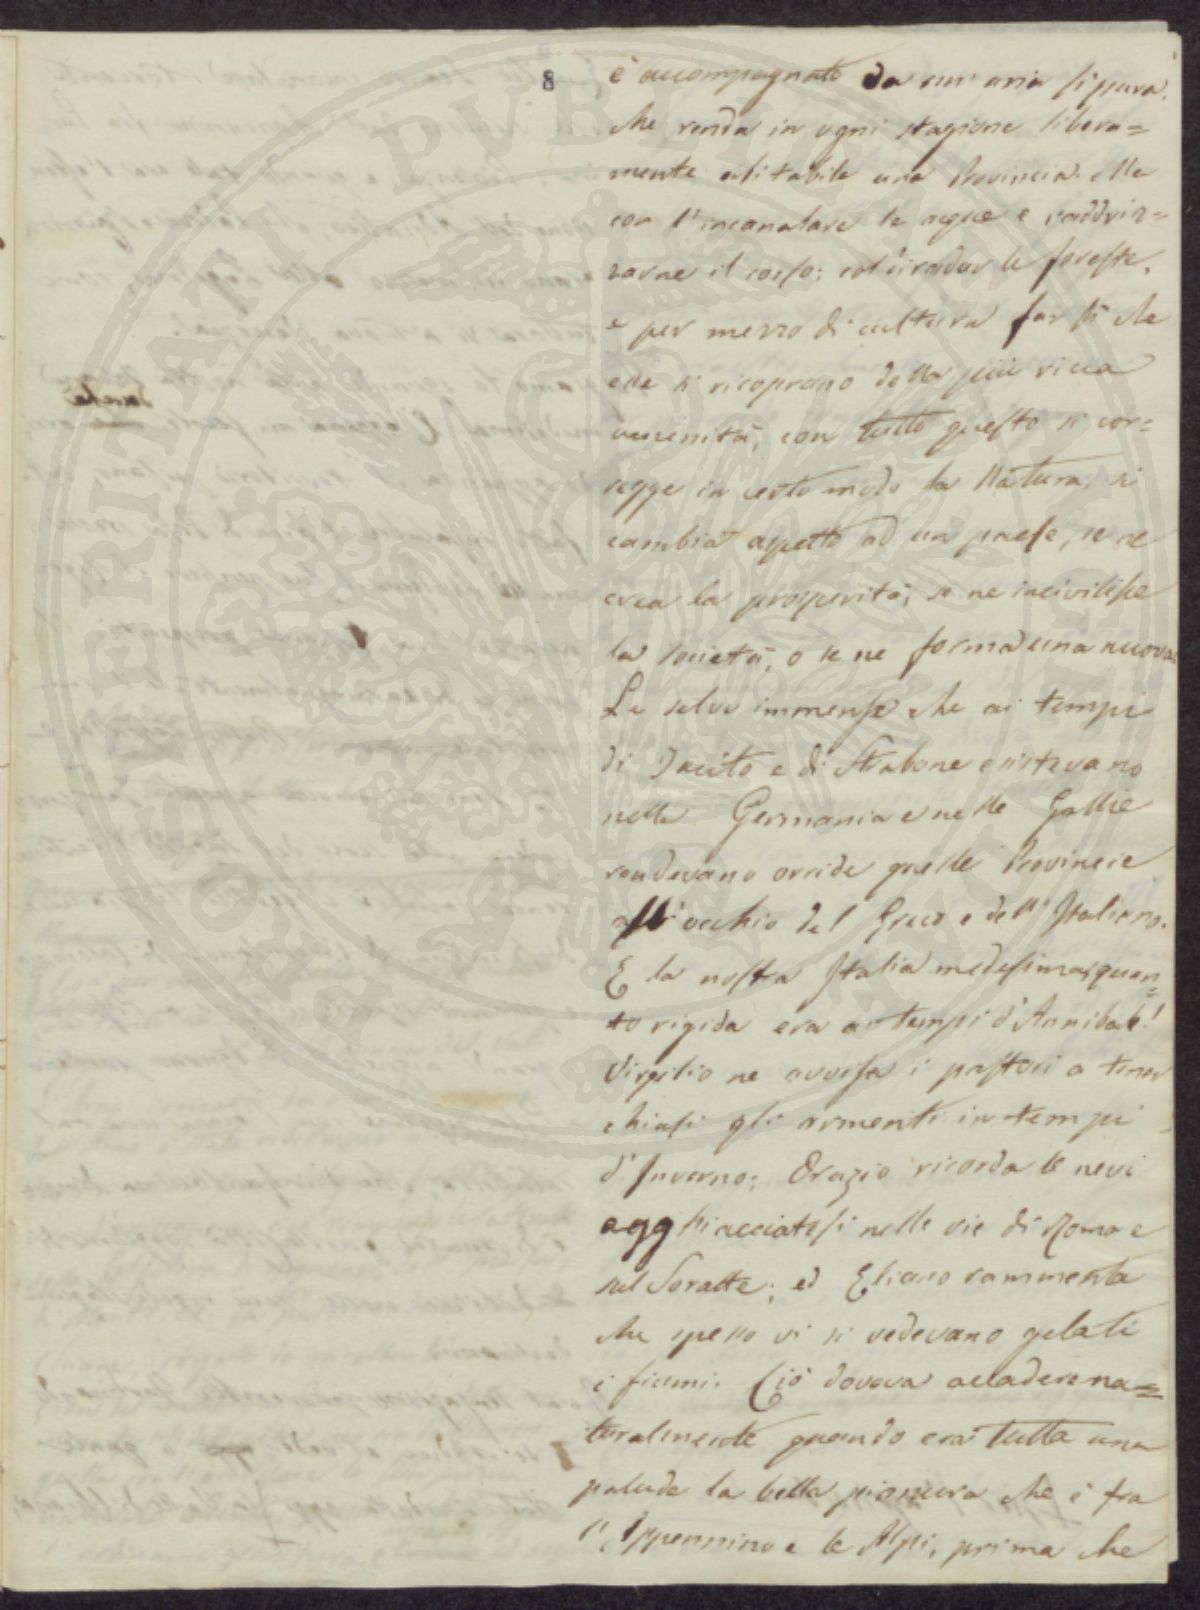 8
è accompagnato da un' aria sì pura,
che renda in ogni stagione libera=
mente abitabile una Provincia. Ma
con l'incanalare le acque e raddriz=
zarne il corso; col diradar le foreste,
e per mezzo di cultura far sì che
esse si ricoprano della più ricca
amenità; con tutto questo si cor=
regge in certo modo la Natura, si
cambia aspetto ad un paese, se ne
crea la prosperità, se ne incivilisce
la società, o se ne forma una nuova.
Le selve immense che ai tempi
di Tacito e di Strabone esistevano
nella Germania e nelle Gallie
rendevano orride quelle Provincie
all' occhio del Greco e dell' Italiano.
E la nostra Italia medesima, quan=
to rigida era ai tempi d'Annibale!
Virgilio ne avvisa i pastori a tener
chiusi gli armenti in tempi
d'Inverno; Orazio ricorda le nevi
agghiacciatesi nelle vie di Roma e
sul Soratte; ed Eliano rammenta
che spesso vi si vedevano gelati
i fiumi. Ciò doveva accadere na=
turalmente quando era tutta una
palude la bella pianura che è fra
l'Appennino e le Alpi, prima che
POSTERITATI PUBLICAE